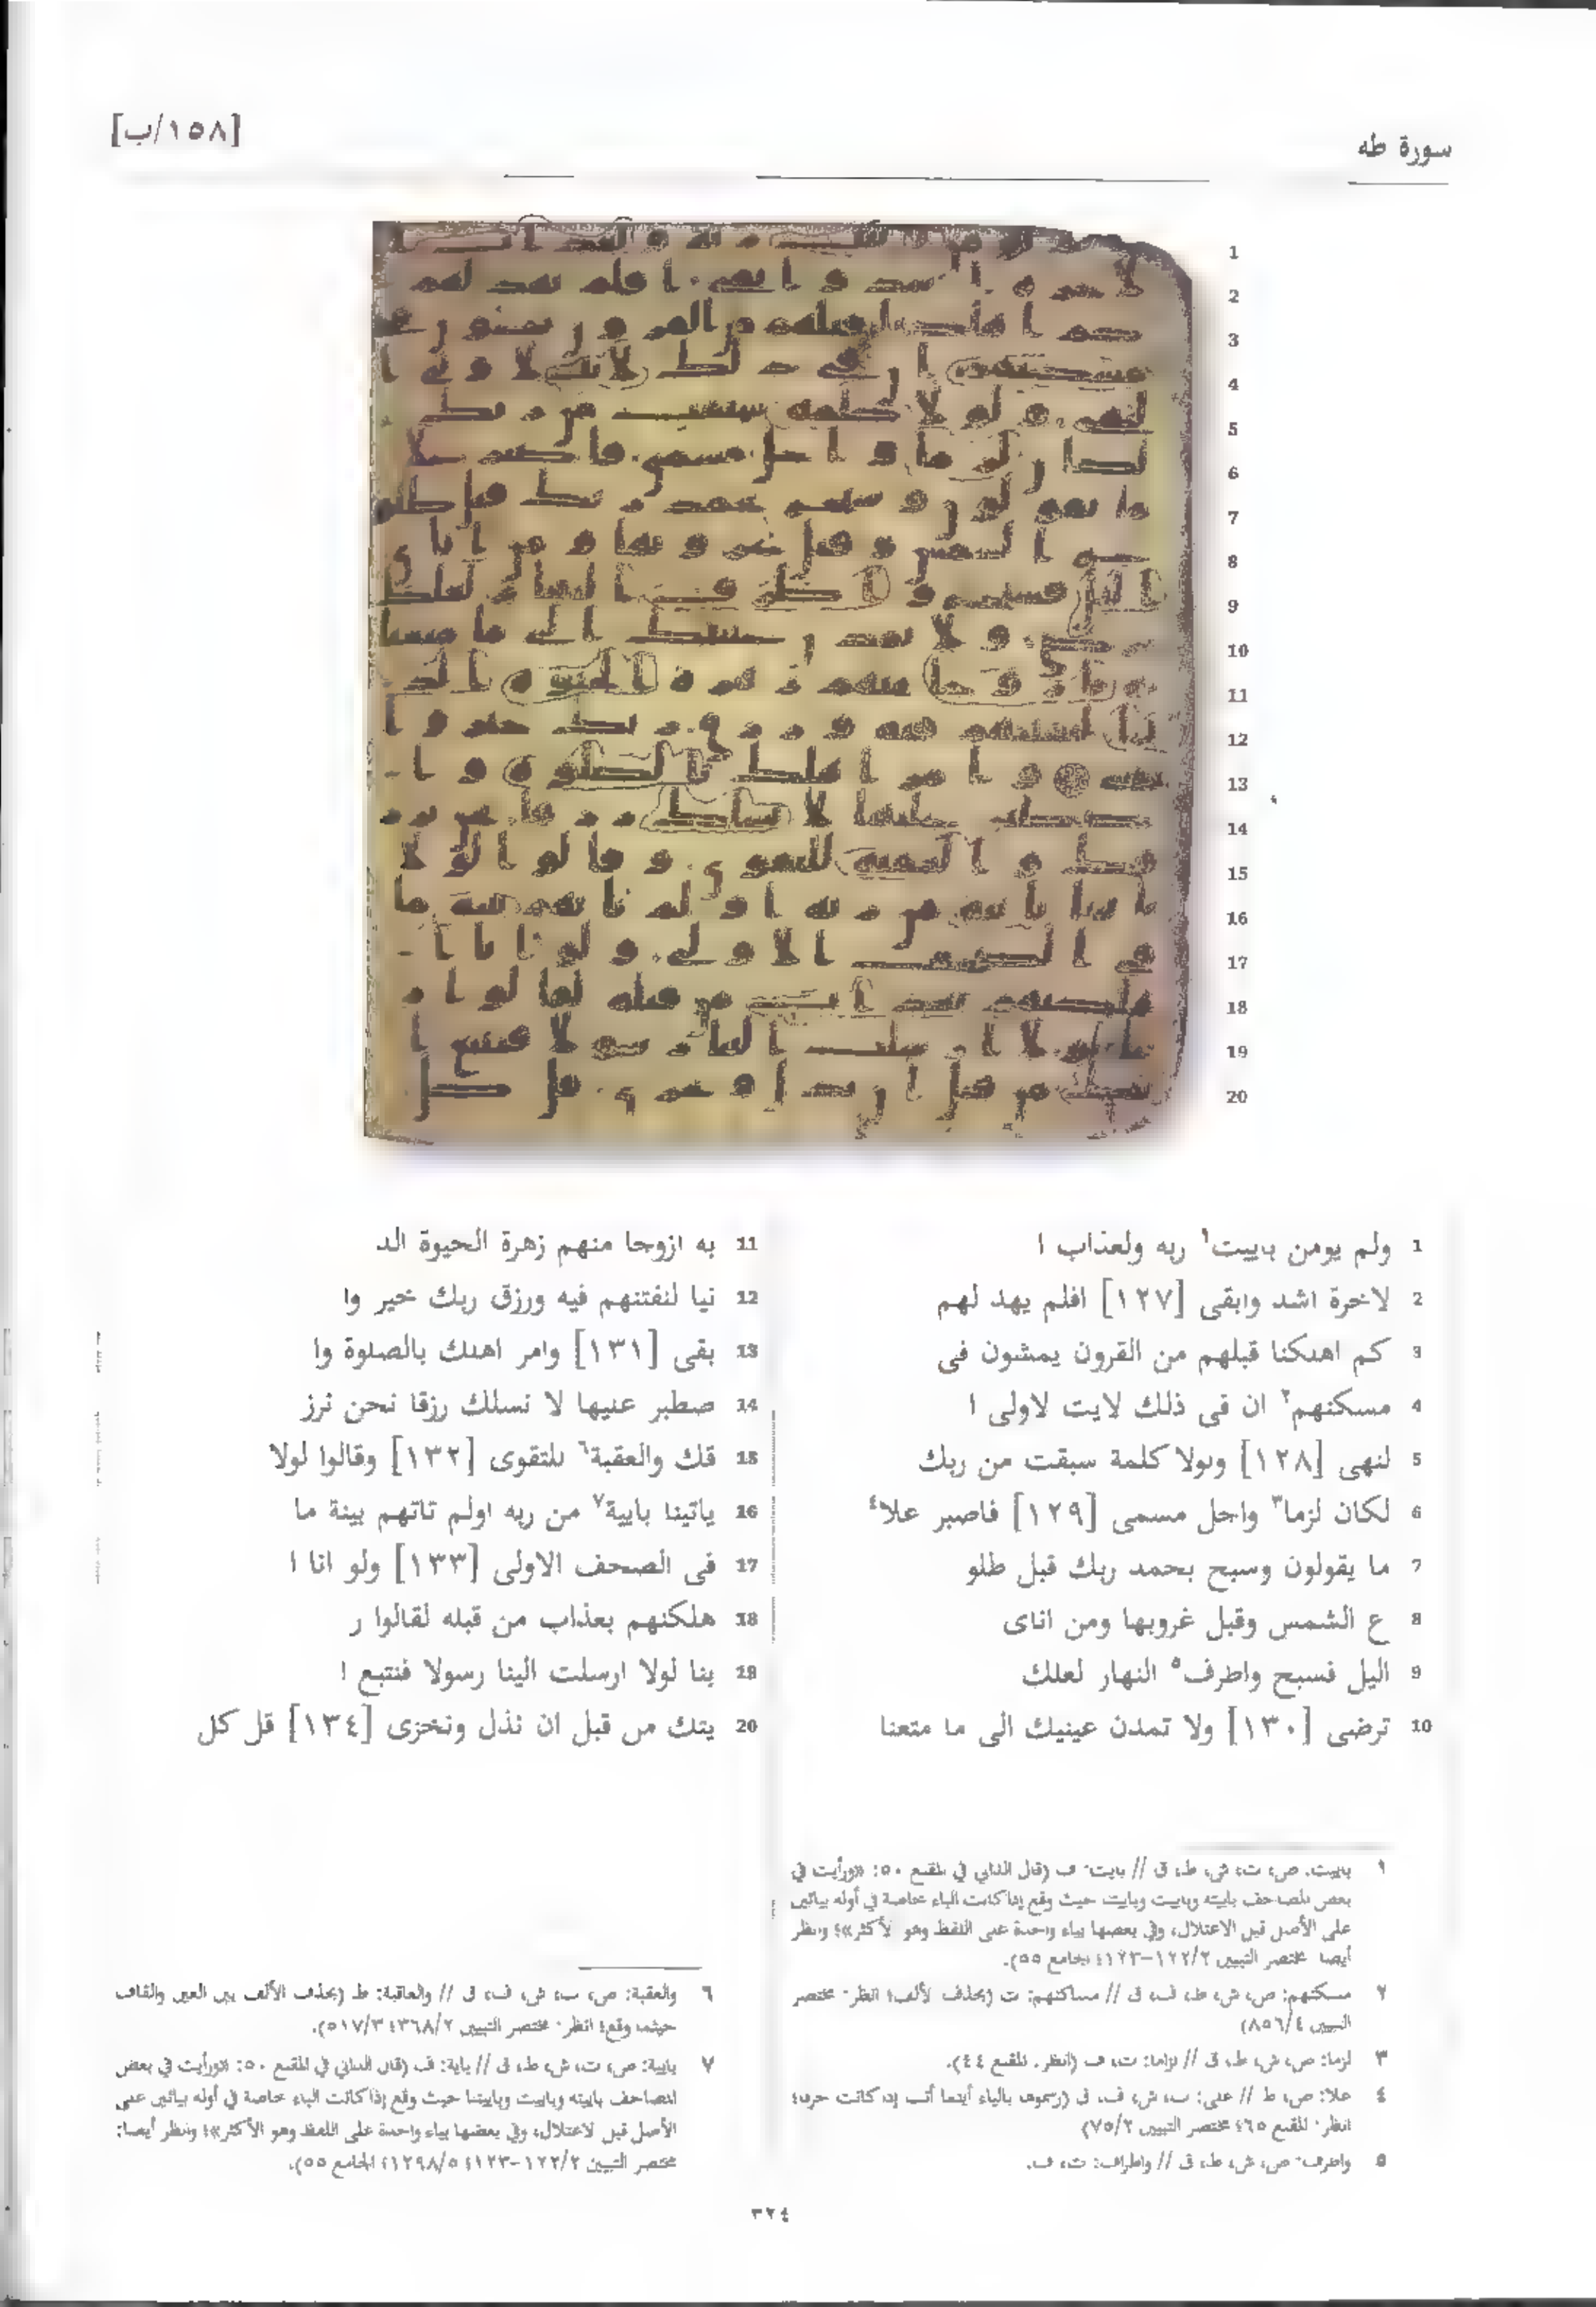 [١٥٨/ب]
سورة طه
1 ولم يومن باييت١ ربه ولعذاب ا
2 لاخرة اشد وابقى [١٢٧] افلم يهد لهم
3 كم اهلكنا قبلهم من القرون يمشون فى
4 مسكنهم٢ ان فى ذلك لايت لاولى ا
5 لنهى [١٢٨] ولولا كلمة سبقت من ربك
6 لكان لزما٣ واجل مسمى [١٢٩] فاصبر علا٤
7 ما يقولون وسبح بحمد ربك قبل طلو
8 ع الشمس وقبل غروبها ومن اناى
9 اليل فسبح واطرف٥ النهار لعلك
10 ترضى [١٣٠] ولا تمدن عينيك الى ما متعنا
11 به ازوجا منهم زهرة الحيوة الد
12 نيا لنفتنهم فيه ورزق ربك خير وا
13 بقى [١٣١] وامر اهلك بالصلوة وا
14 صطبر عليها لا نسلك رزقا نحن نرز
15 قك والعقبة٦ للتقوى [١٣٢] وقالوا لولا
16 ياتينا بايية٧ من ربه اولم تاتهم بينة ما
17 فى الصحف الاولى [١٣٣] ولو انا ا
18 هلكنهم بعذاب من قبله لقالوا ر
19 بنا لولا ارسلت الينا رسولا فنتبع ا
20 يتك من قبل ان نذل ونخزى [١٣٤] قل كل
١ باييت: ص، ت، ش، ط، ق // بايت: ف (قال الداني في المقنع ٥٠: «ورأيت في
بعض المصاحف باييته وباييت وباييت حيث وقع إذا كانت الباء خاصة في أوله بيائين
على الأصل قبل الاعتلال، وفي بعضها بياء واحدة على اللفظ وهو الأكثر»؛ وانظر
أيضا مختصر التبيين ١٢٢/٢-١٢٣؛ الجامع ٥٥).
٢ مسكنهم: ص، ش، ط، ف، ق // مساكنهم: ت (بحذف الألف؛ انظر: مختصر
التبيين ٨٥٦/٤)
٣ لزما: ص، ش، ط، ق // لزاما: ت، ف (انظر: المقنع ٤٤).
٤ علا: ص، ط // على: ت، ش، ف، ق (رسموه بالياء أينما أتت إذا كانت حرف؛
انظر: المقنع ٦٥؛ مختصر التبيين ٧٥/٢)
٥ واطرف: ص، ش، ط، ق // واطراف: ت، ف.
٦ والعقبة: ص، ت، ش، ف، ق // والعاقبة: ط (بحذف الألف بين العين والقاف
حيثما وقع؛ انظر: مختصر التبيين ٣٦٨/٢؛ ٥١٧/٣).
٧ بايية: ص، ت، ش، ط، ق // باية: ف (قال الداني في المقنع ٥٠: «ورأيت في بعض
المصاحف باييته وباييت وباييتنا حيث وقع إذا كانت الباء خاصة في أوله بيائين على
الأصل قبل لاعتلال، وفي بعضها بياء واحدة على اللفظ وهو الأكثر»؛ وانظر أيضا:
مختصر التبيين ١٢٢/٢-١٢٣؛ ١٢٩٨/٥؛ الجامع ٥٥).
٣٢٤